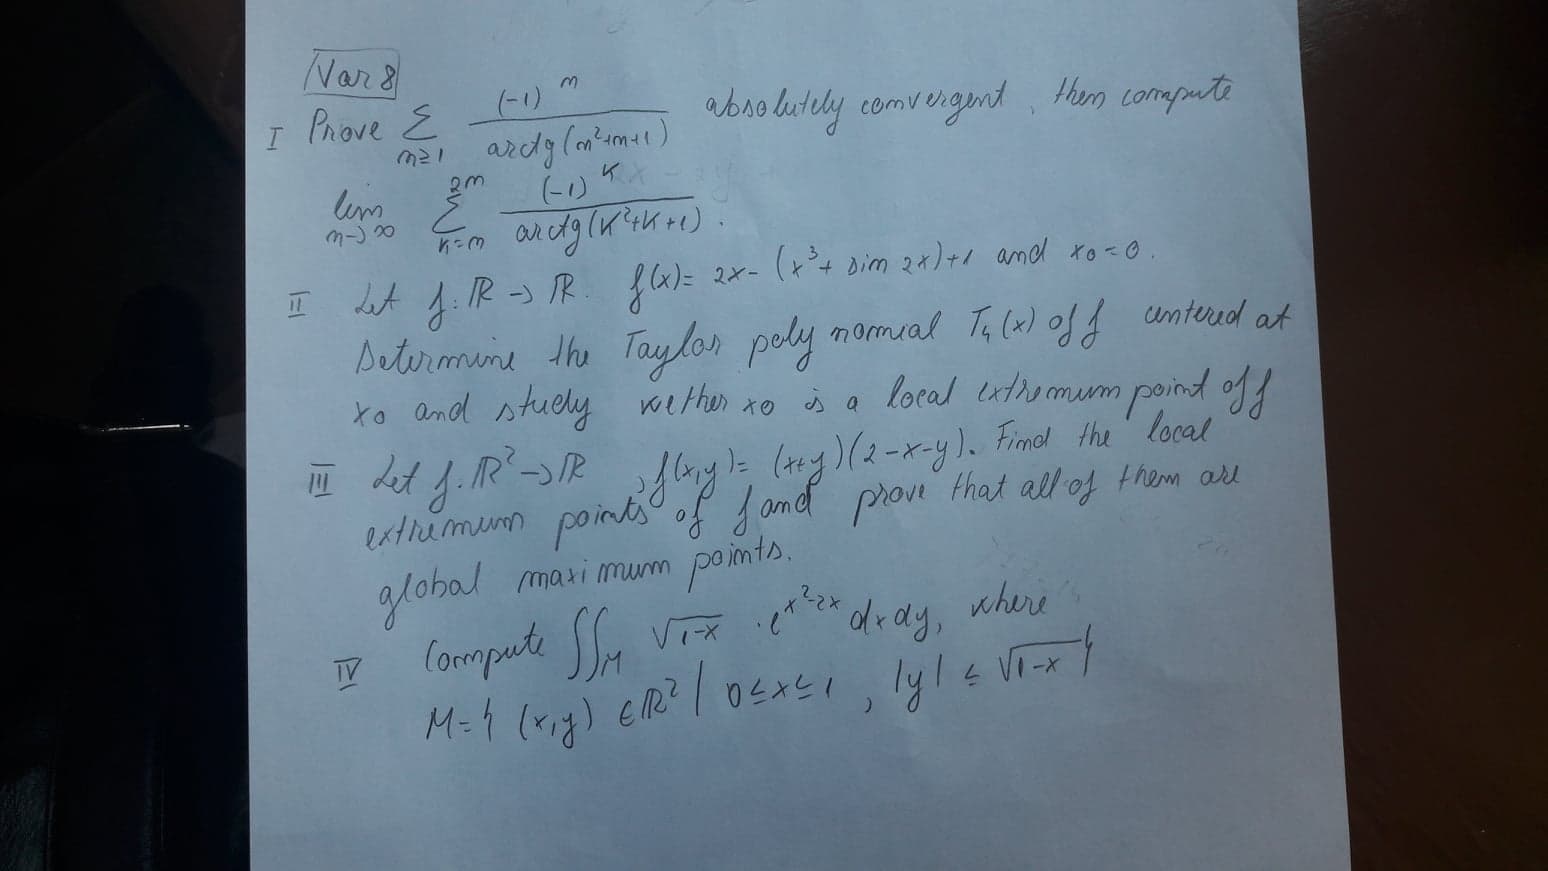 Var 8
I Prove Σ_{n≥1} (-1)^n / arctg(n²+n+1) absolutely convergent, then compute
lim_{n→∞} Σ_{k=n}^{2n} (-1)^k / arctg(k²+k+1).
II Let f: ℝ → ℝ. f(x)= 2x-(x³+ sin 2x)+1 and x0=0.
Determine the Taylor poly nomial T₄(x) of f centered at
x0 and study wether x0 is a local extremum point of f
III Let f: ℝ² → ℝ, f(x,y)= (x+y)(2-x-y). Find the local
extremum points of f and prove that all of them are
global maximum points.
IV Compute ∬_M √(1-x) · e^{x²-2x} dx dy, where
M={ (x,y) ∈ ℝ² | 0≤x≤1, |y| ≤ √(1-x) }